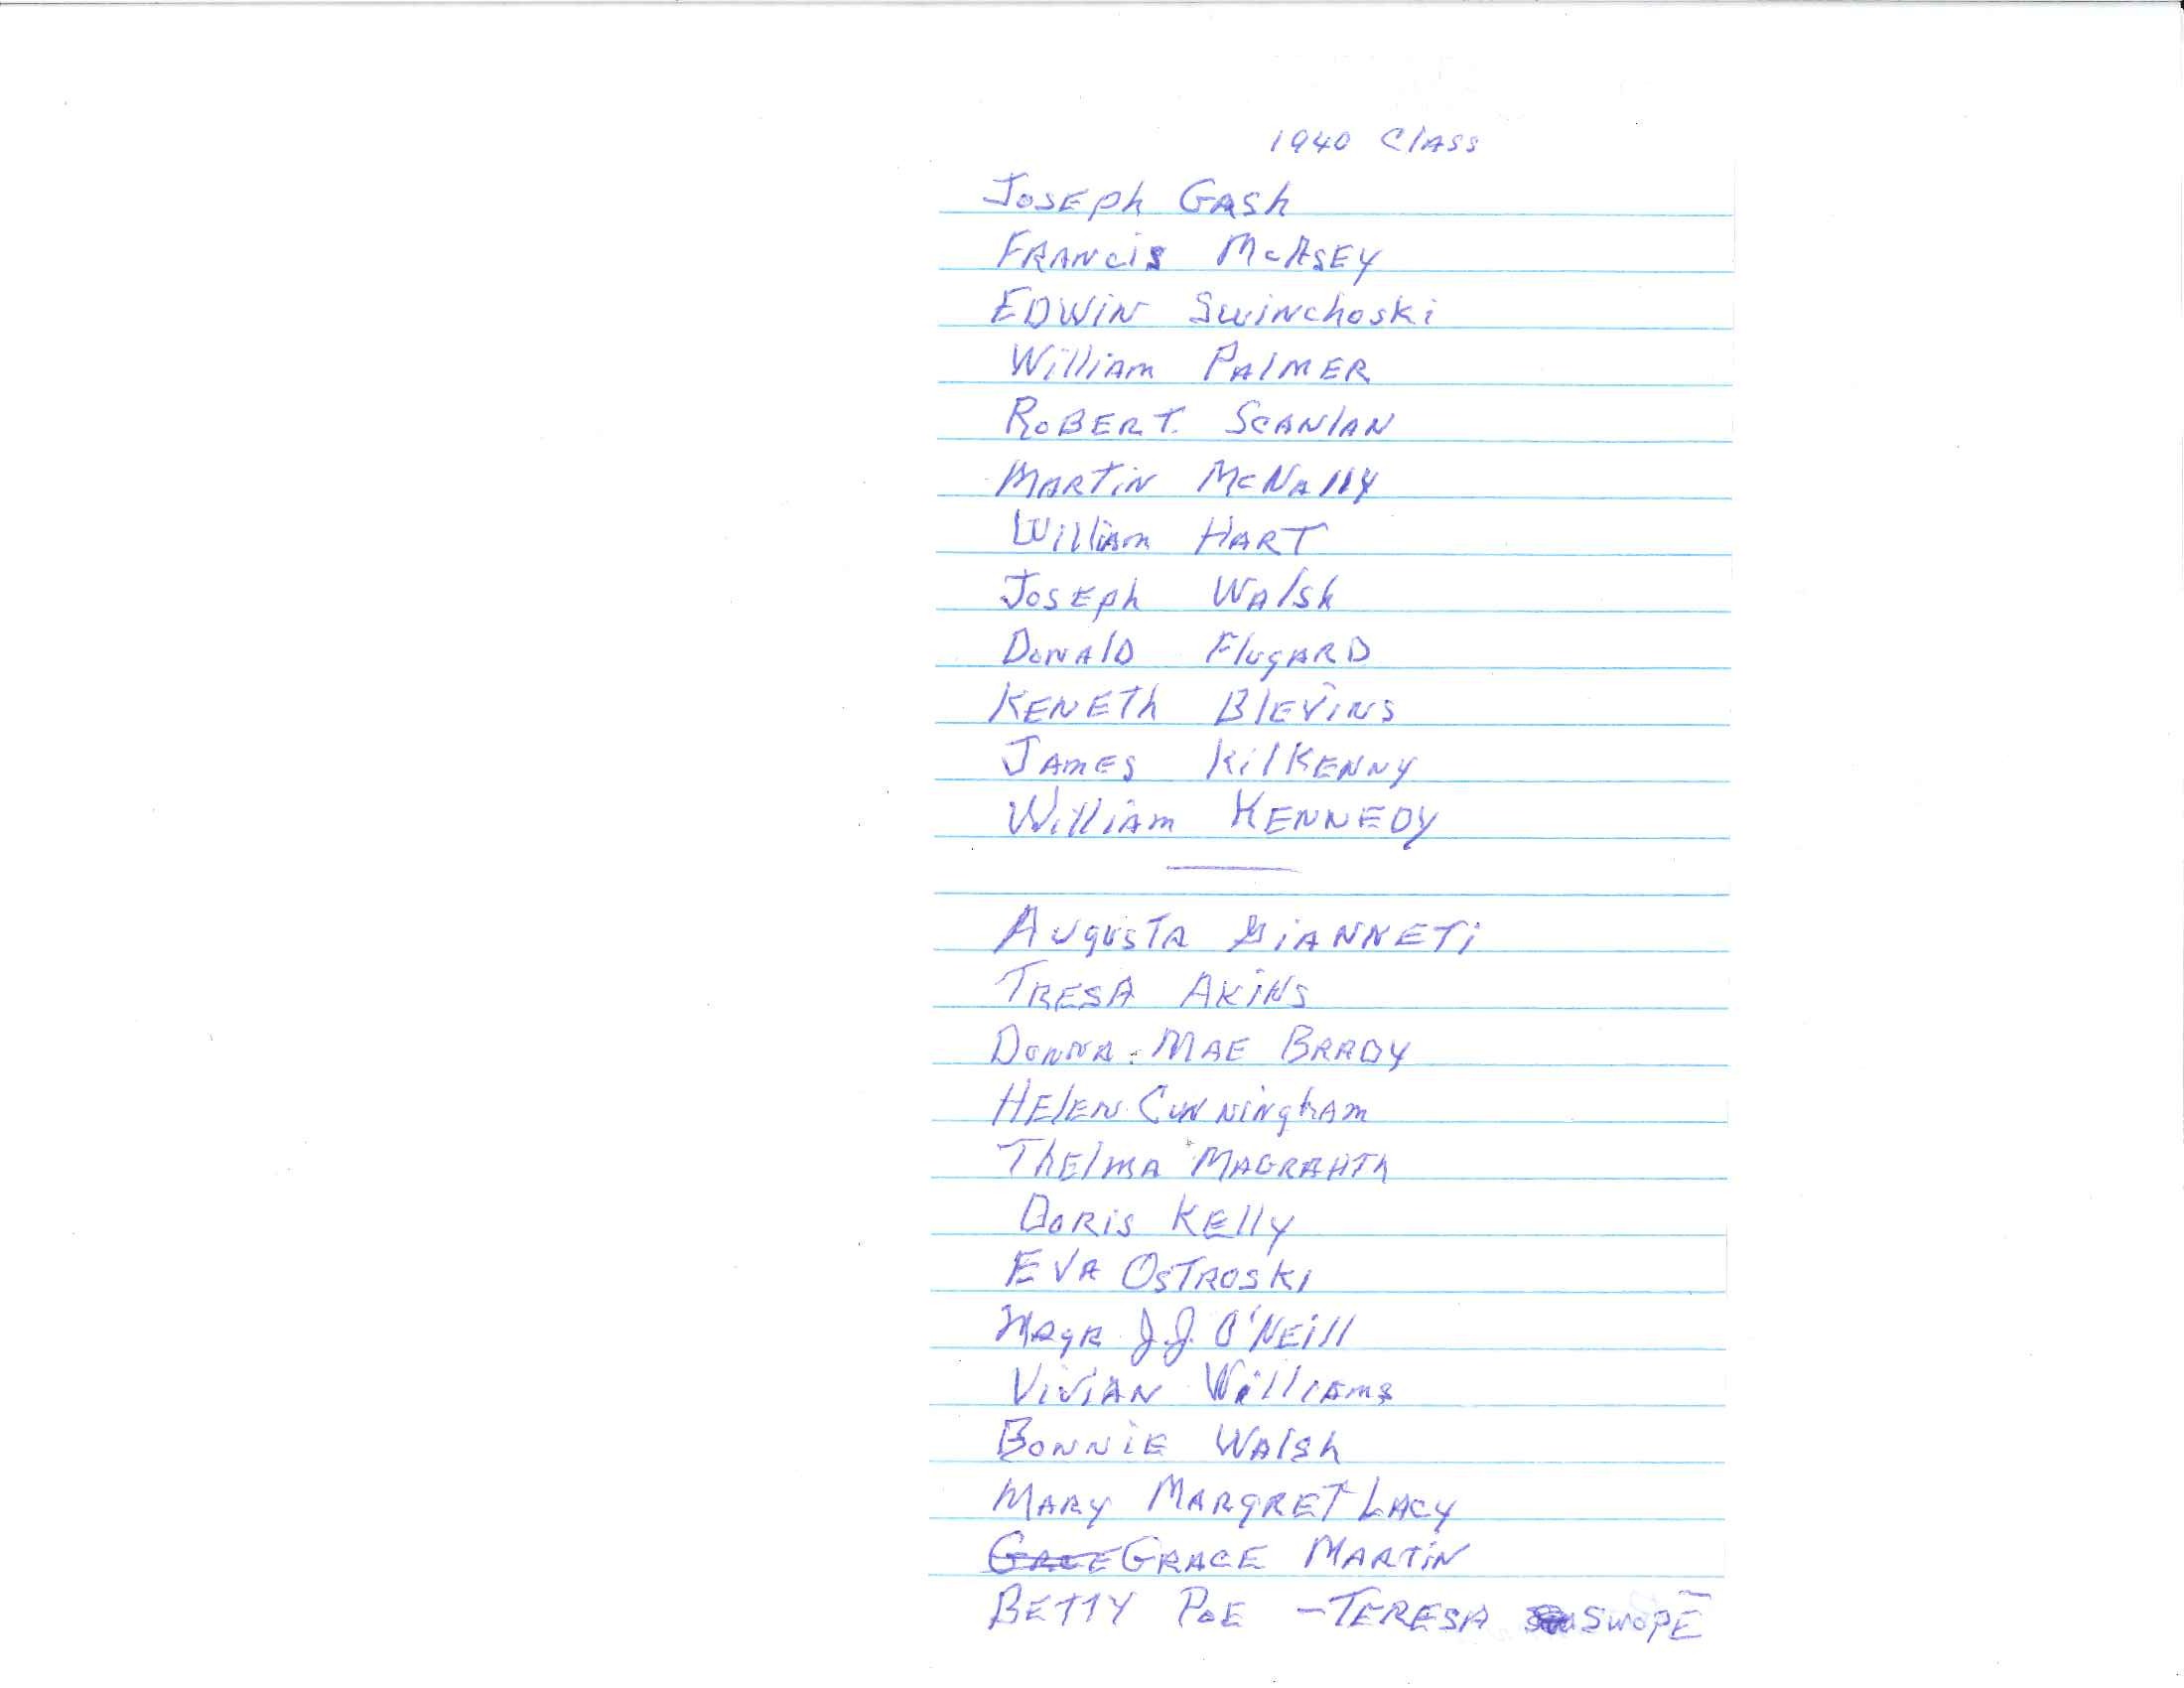 1940 Class
Joseph Gash
Francis McAsey
Edwin Swinchoski
William Palmer
Robert Scanlan
Martin McNally
William Hart
Joseph Walsh
Donald Flugard
Keneth Blevins
James Kilkenny
William Kennedy
Augusta Gianneti
Tresa Akins
Donna Mae Brady
Helen Cunningham
Thelma Magrahth
Doris Kelly
Eva Ostroski
J.J. O'Neill
Vivian Williams
Bonnie Walsh
Mary Margret Lacy
Grace Martin
Betty Poe - Teresa Swope